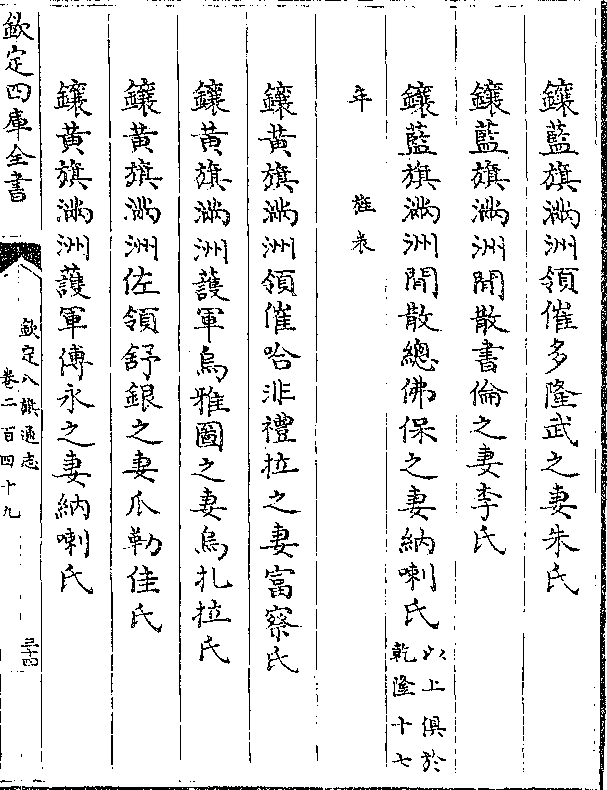 鑲藍旗滿洲領催多隆武之妻朱氏
鑲藍旗滿洲閒散書倫之妻李氏
鑲藍旗滿洲閒散總佛保之妻納喇氏以上俱於乾隆十七
年旌表
鑲黃旗滿洲領催哈非禮拉之妻富察氏
鑲黃旗滿洲護軍烏雅圖之妻烏扎拉氏
鑲黃旗滿洲佐領舒銀之妻爪勒佳氏
鑲黃旗滿洲護軍傅永之妻納喇氏
欽定四庫全書
欽定八旗通志
卷二百四十九
三十四